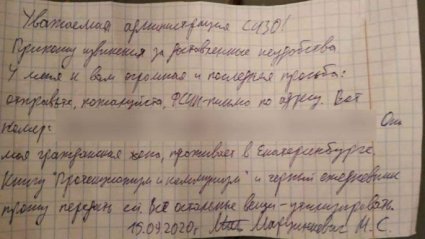 Уважаемая администрация СИЗО!
Приношу извинения за доставленные неудобства.
У меня к вам огромная и последняя просьба:
отправьте, пожалуйста, ФСИН-письмо по адресу. Вот
номер: Она
моя гражданская жена, проживает в Екатеринбурге.
Книгу "Протекционизм и коммунизм" и чёрный ежедневник
прошу передать ей. Все остальные вещи - утилизировать.
15.09.2020г. Марцинкевич М.С.